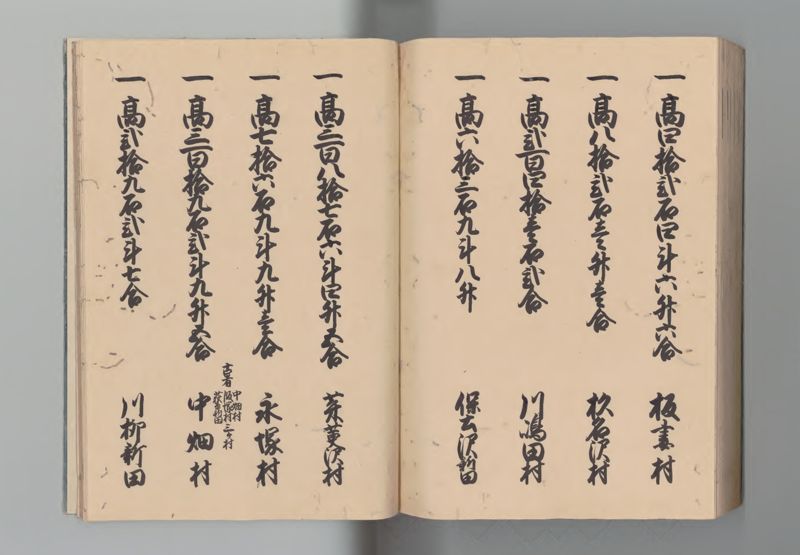 一 高四拾弐石四斗六升六合 板妻村
一 高八拾弐石壱升壱合 杉名沢村
一 高弐百四拾壱石弐合 川嶋田村
一 高六拾三石九斗八升 保土沢新田
一 高三百八拾七石六斗四升五合 茱萸沢村
一 高七拾六石九斗九升壱合 永塚村
一 高三百拾九石弐斗九升五合 中畑村
古者
中畑村
塚村 三ヶ村
新田
一 高弐拾九石弐斗七合 川柳新田